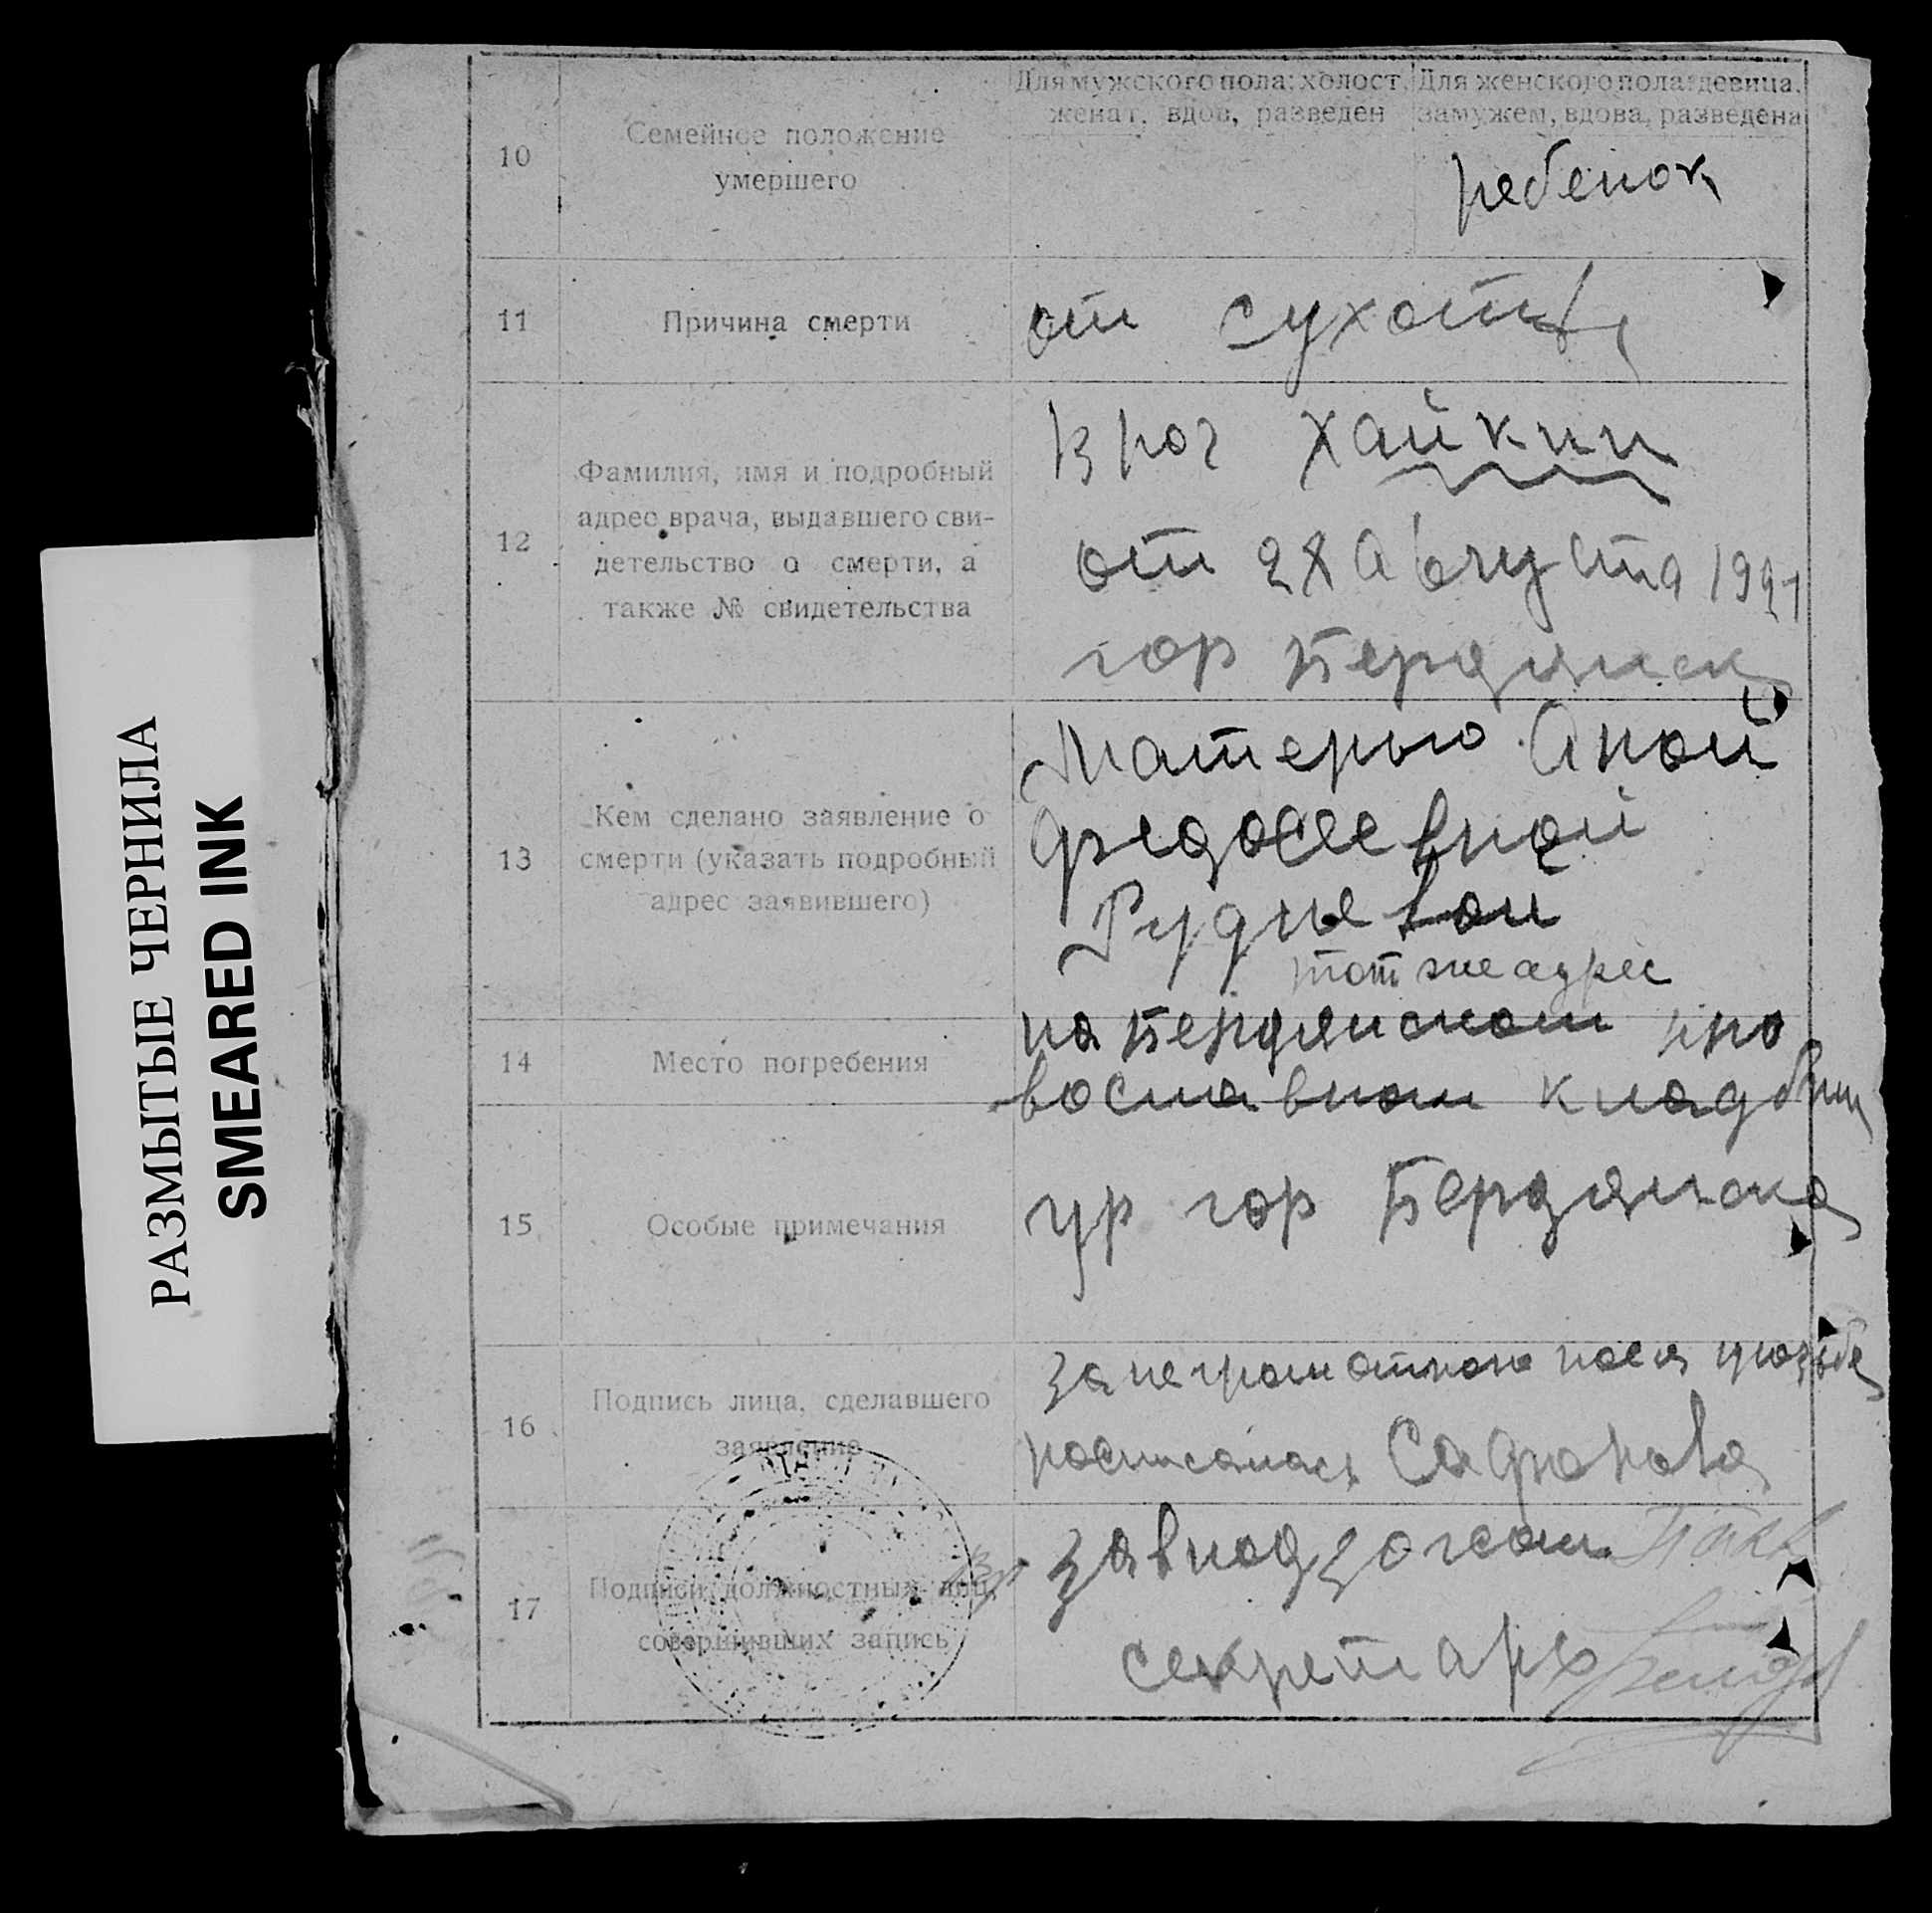 РАЗМЫТЫЕ ЧЕРНИЛА
SMEARED INK
10
Семейное положение
умершего
Для мужского пола: холост,
женат, вдов, разведен
Для женского пола: девица,
замужем, вдова, разведена
ребенок
11
Причина смерти
от сухоты
12
Фамилия, имя и подробный
адрес врача, выдавшего сви-
детельство о смерти, а
также № свидетельства
врач Хайкин
от 28 августа 1941
гор Бердянск
13
Кем сделано заявление о
смерти (указать подробный
адрес заявившего)
Матерью Аной
Федосеевной
Рудневой
тот же адрес
14
Место погребения
на Бердянском про
вославном кладбищ
15
Особые примечания
ур гор Бердянска
16
Подпись лица, сделавшего
заявление
за неграмотною
росписалась Сафронова
17
Подписи должностных лиц,
совершивших запись
Завподзагсом
секретарь